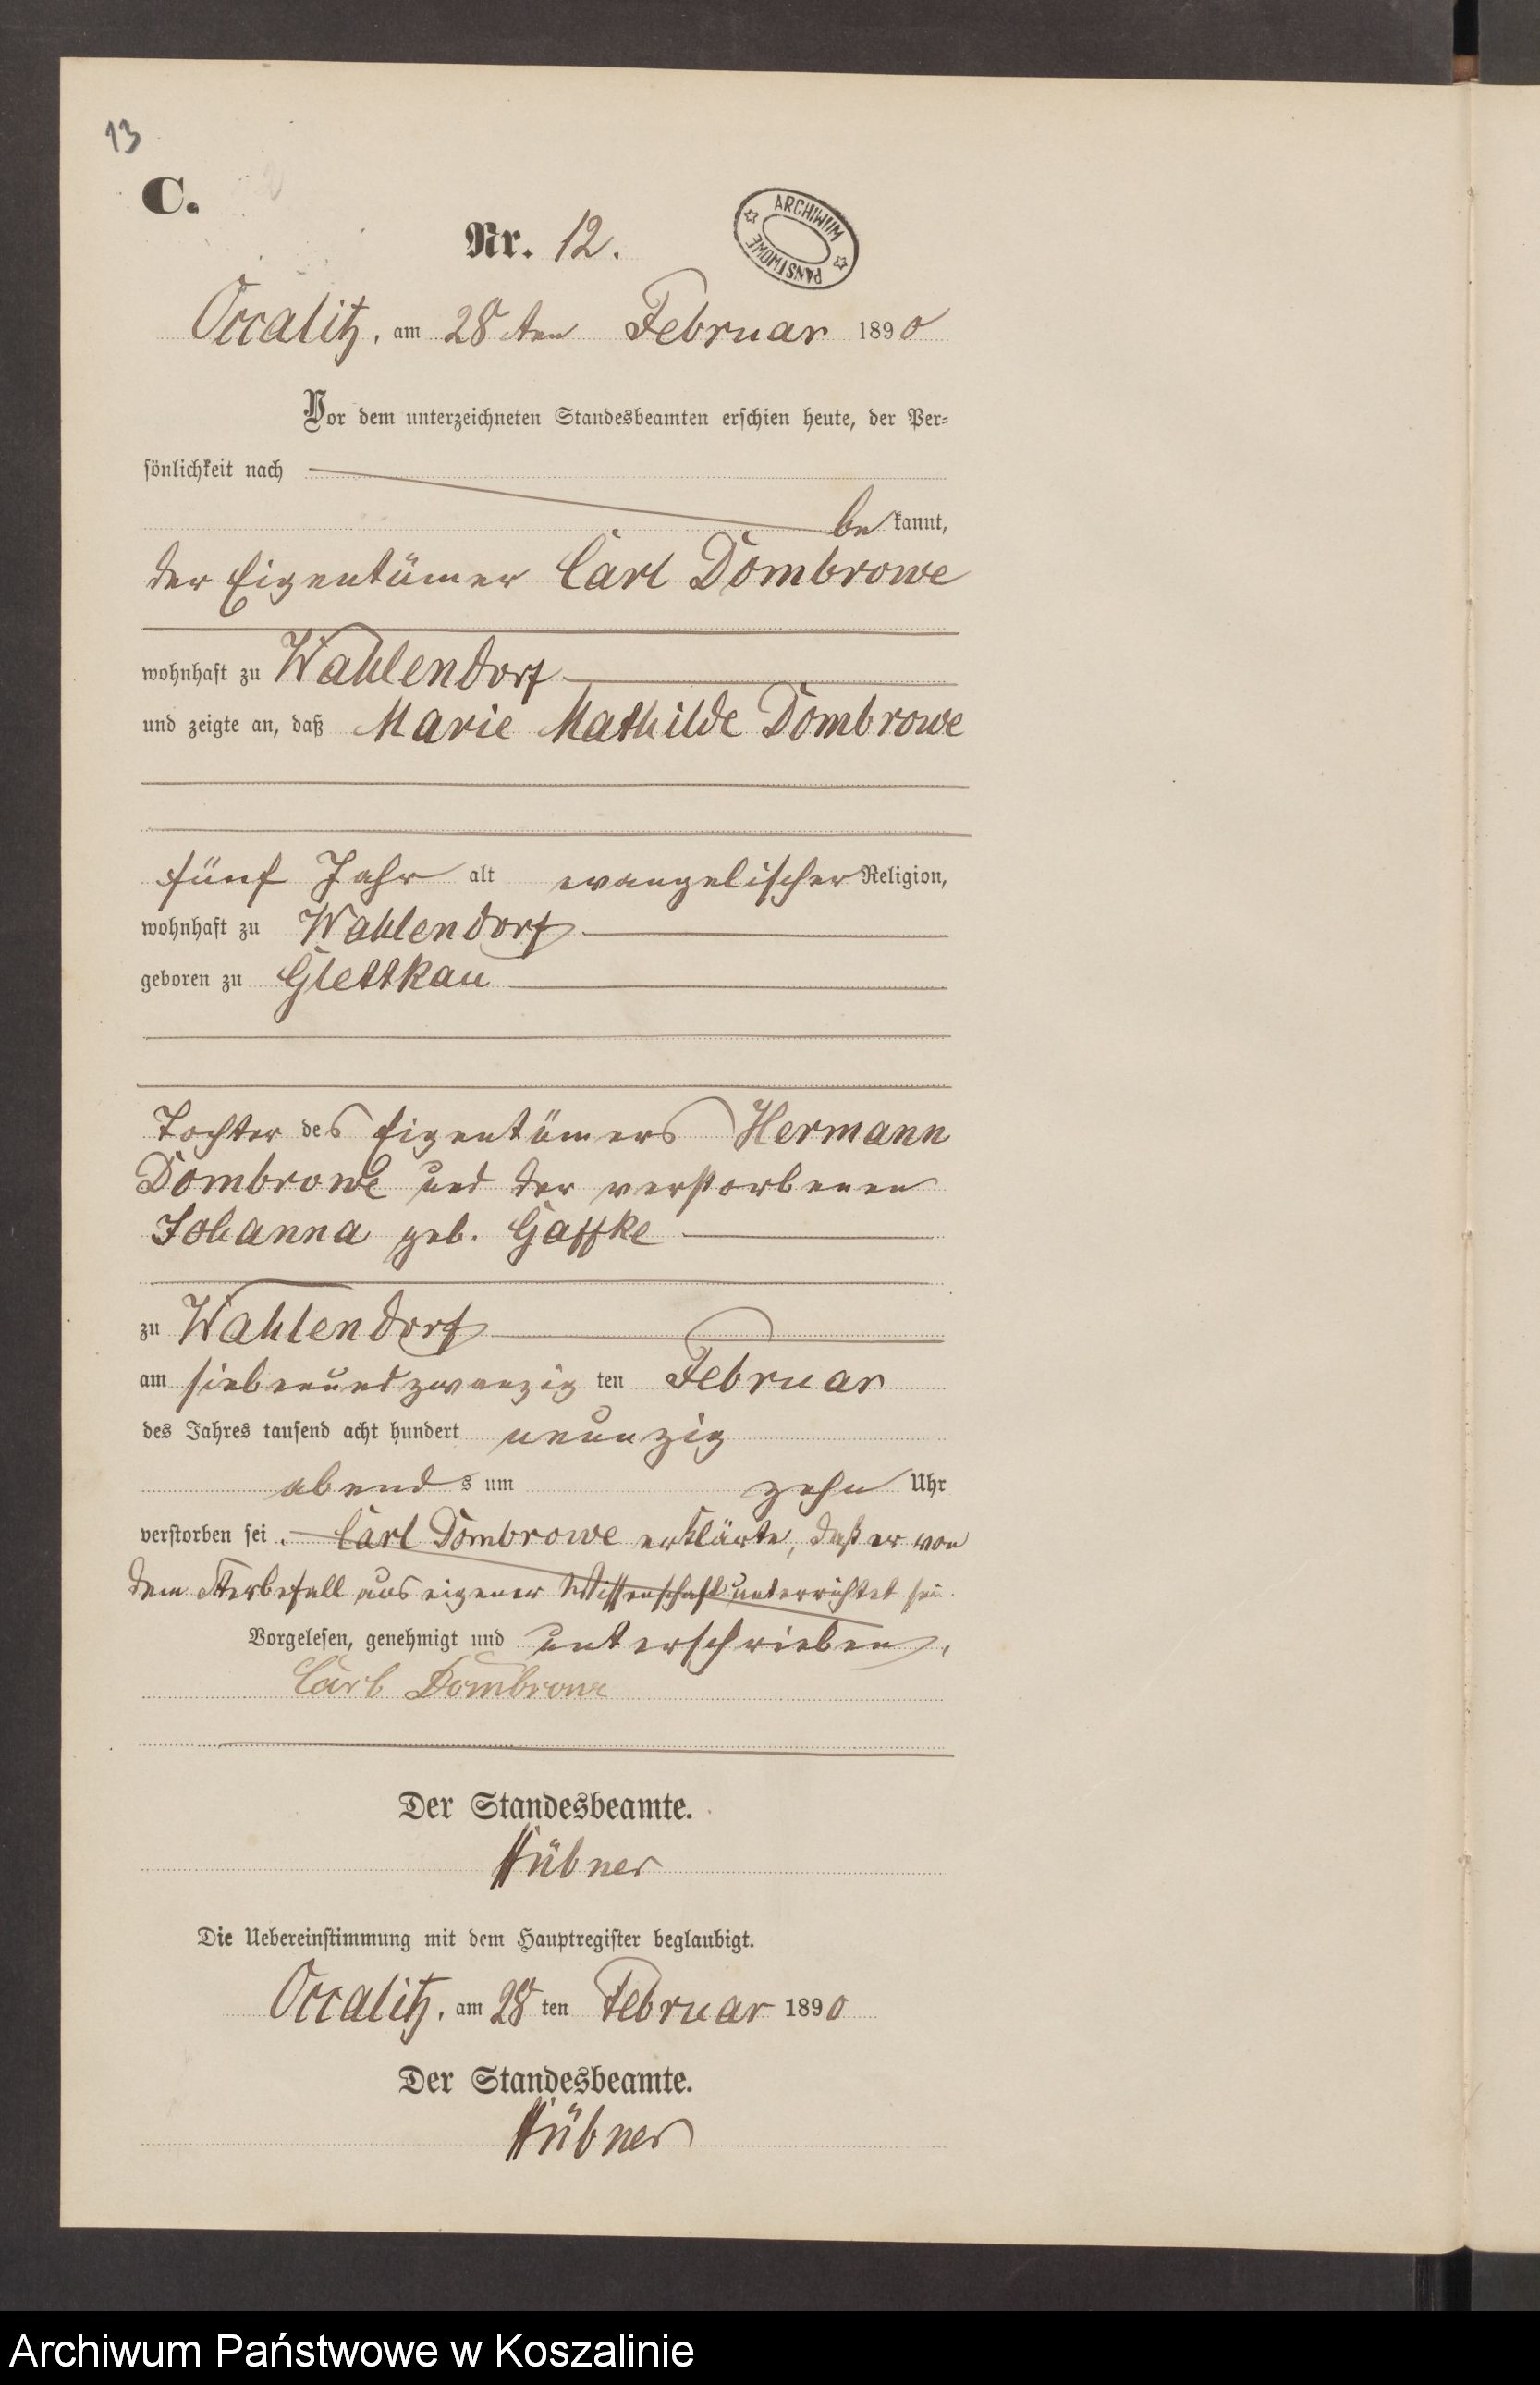 13
C.
Nr. 12.
ARCHIWUM PAŃSTWOWE
Occalitz, am 28 ten Februar 1890
Vor dem unterzeichneten Standesbeamten erschien heute, der Per-
sönlichkeit nach
be kannt,
der Eigentümer Carl Dombrowe
wohnhaft zu Wahlendorf
und zeigte an, daß Marie Mathilde Dombrowe
fünf Jahr alt evangelischer Religion,
wohnhaft zu Wahlendorf
geboren zu Glettkau
Tochter des Eigentümers Hermann
Dombrowe und der verstorbenen
Johanna geb. Gaffke
zu Wahlendorf
am siebenundzwanzig ten Februar
des Jahres tausend acht hundert neunzig
abend s um zehn Uhr
verstorben sei. Carl Dombrowe erklärte, daß er von
dem Sterbefall aus eigener Wissenschaft unterrichtet sei.
Vorgelesen, genehmigt und unterschrieben,
Carl Dombrowe
Der Standesbeamte.
Hübner
Die Uebereinstimmung mit dem Hauptregister beglaubigt.
Occalitz, am 28 ten Februar 1890
Der Standesbeamte.
Hübner
Archiwum Państwowe w Koszalinie